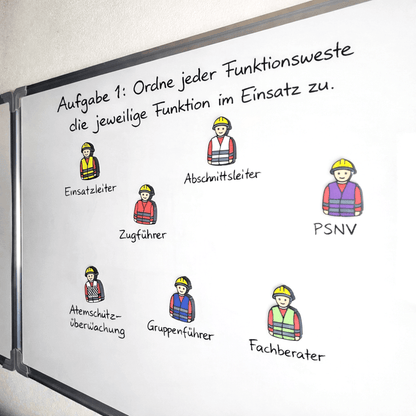 Aufgabe 1: Ordne jeder Funktionsweste
die jeweilige Funktion im Einsatz zu.
Einsatzleiter
Zugführer
Abschnittsleiter
PSNV
Atemschutz-
überwachung
Gruppenführer
Fachberater